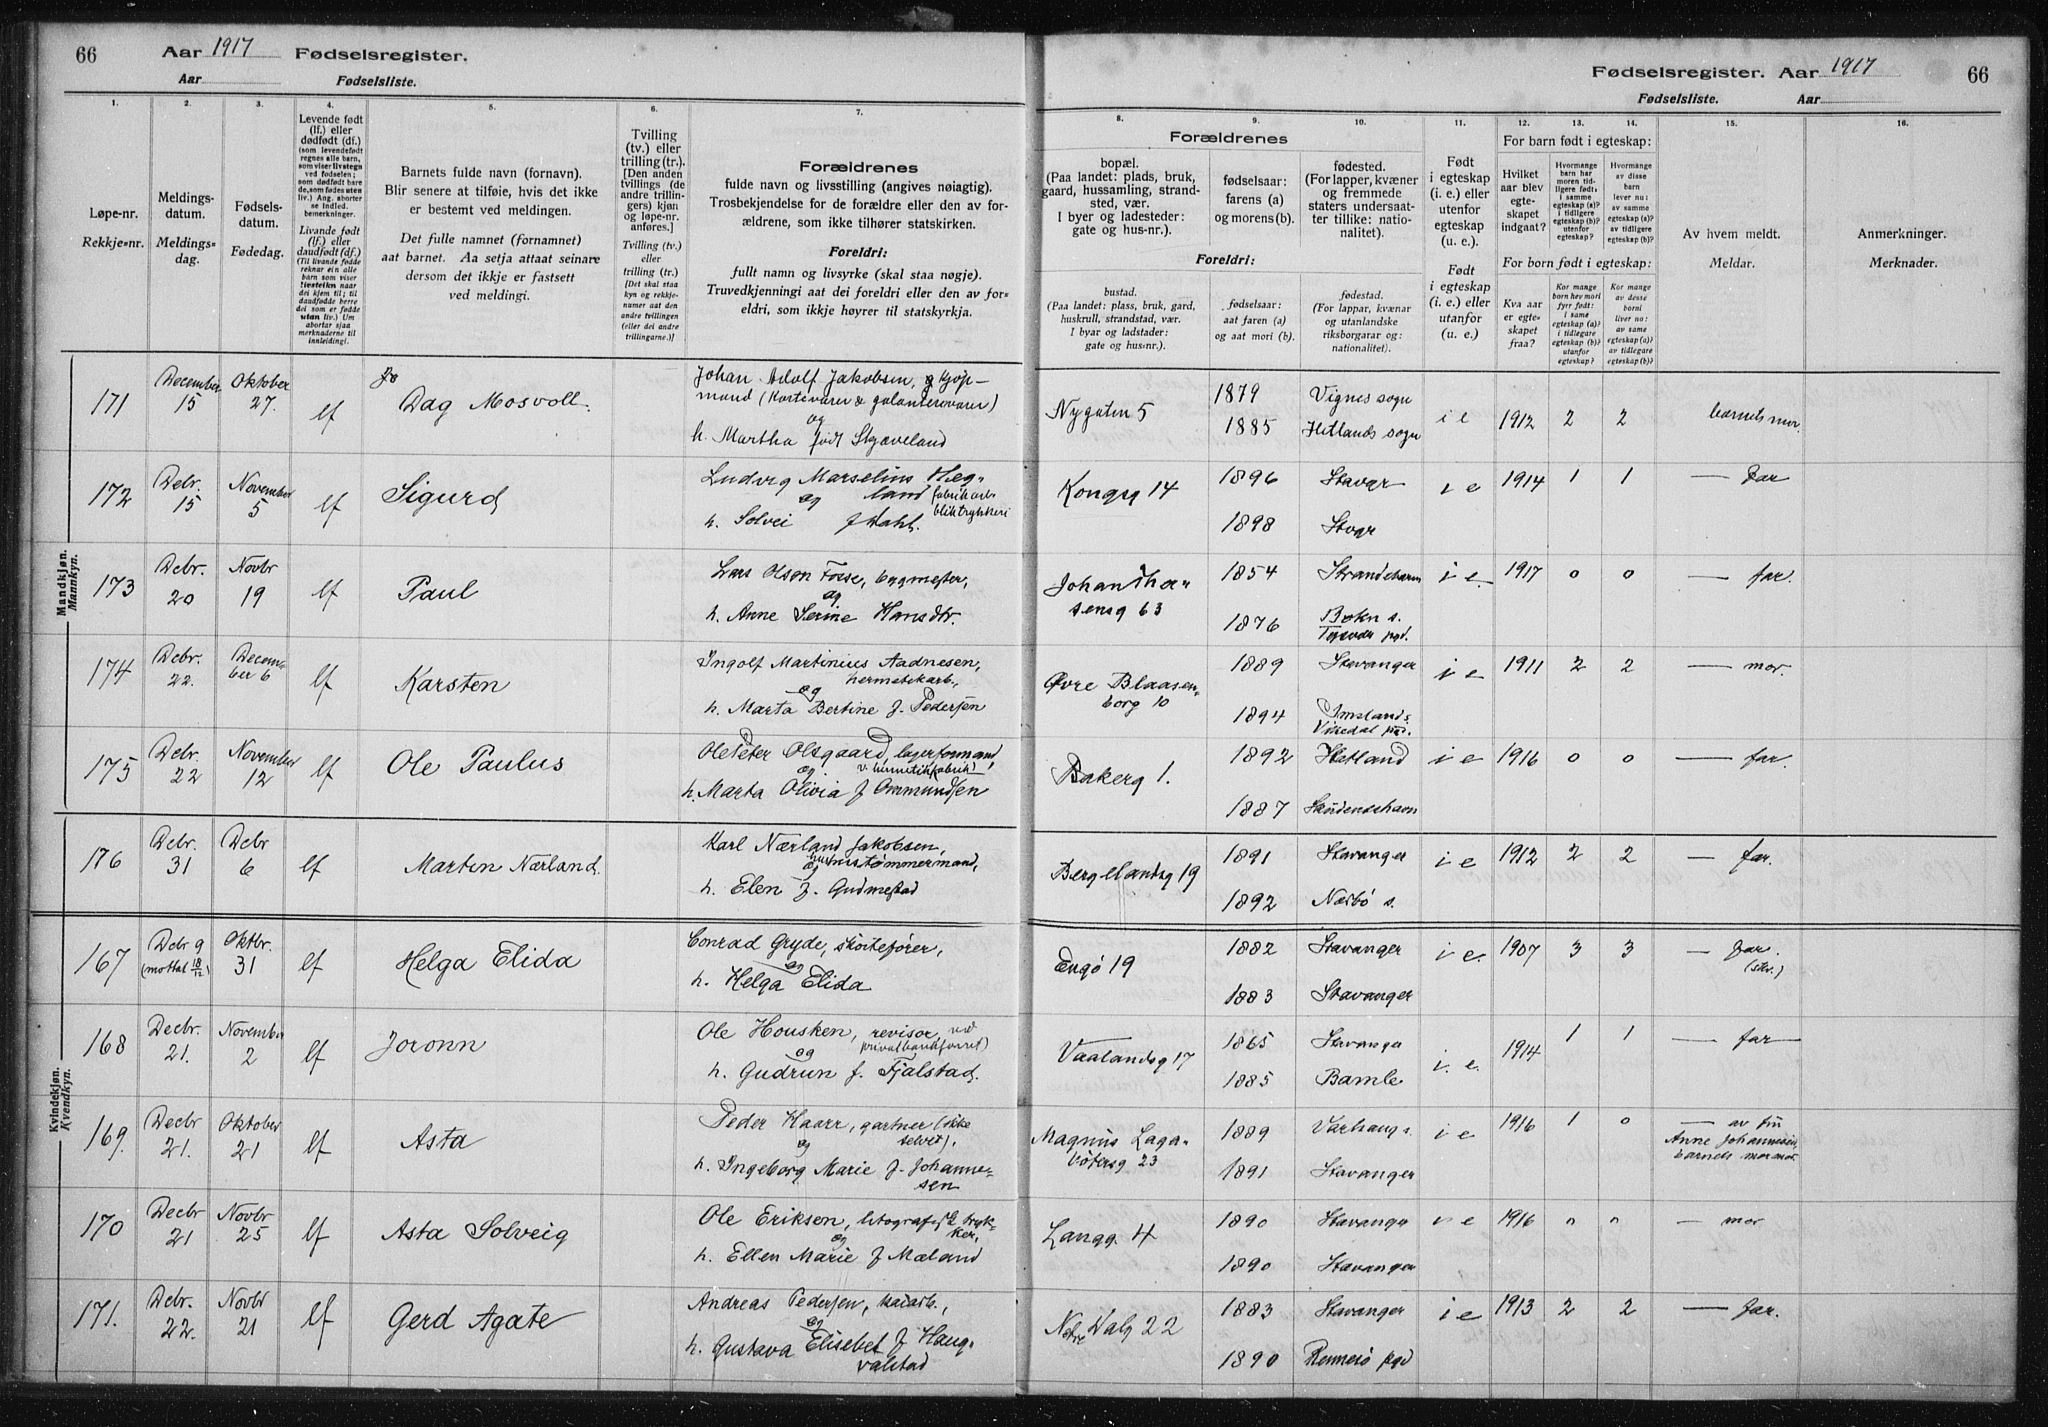 66 Aar 1917 Fødselsregister.
Aar Fødselsliste.
Fødselsregister. Aar 1917 66
Fødselsliste. Aar
1. 2. 3. 4. 5. 6. 7. 8. 9. 10. 11. 12. 13. 14. 15. 16.
Løpe-nr.
Rekkje-nr.
Meldings-
datum.
Meldings-
dag.
Fødsels-
datum.
Fødedag.
Levende født
(lf.) eller
dødfødt (df.)
(som levendefødt
regnes alle barn,
som viser livstegn
ved fødselen;
som dødfødt bare
de, som fødes uten
liv.) Ang. aborter
se indled.
bemerkninger.
Livande født
(lf.) eller
daudfødt (df.)
(Til livande fødde
reknar ein alle
barn som viser
livsteikn naar
dei kjem til; til
daudfødde berre
dei som er fødde
utan liv.) Um
abortar sjaa
merknaderne til
innleidingi.
Barnets fulde navn (fornavn).
Blir senere at tilføie, hvis det ikke
er bestemt ved meldingen.
Det fulle namnet (fornamnet)
aat barnet. Aa setja attaat seinare
dersom det ikkje er fastsett
ved meldingi.
Tvilling
(tv.) eller
trilling (tr.).
[Den anden
tvillings (de
andre trillin-
gers) kjøn og
løpe-nr.
anføres.]
Tvilling (tv.)
eller
trilling (tr.)
[Det skal staa
kyn og rekkje-
numer aat den
andre tvillingen
(eller dei andre
trillingarne.)]
Forældrenes
fulde navn og livsstilling (angives nøiagtig).
Trosbekjendelse for de forældre eller den av for-
ældrene, som ikke tilhører statskirken.
Foreldri:
fullt namn og livsyrke (skal staa nøgje).
Truvedkjenningi aat dei foreldri eller den av for-
eldri, som ikkje høyrer til statskyrkja.
Forældrenes
bopæl.
(Paa landet: plads, bruk,
gaard, hussamling, strand-
sted, vær.
I byer og ladesteder:
gate og hus-nr.).
fødselsaar:
farens (a)
og morens (b).
fødested.
(For lapper, kvæner
og fremmede
staters undersaat-
ter tillike: natio-
nalitet).
Foreldri:
bustad.
(Paa landet: plass, bruk, gard,
huskrull, strandstad, vær.
I byar og ladstader:
gate og hus-nr.).
fødselsaar:
aat faren (a)
og aat mori (b).
fødestad.
(For lappar, kvænar
og utanlandske
riksborgarar og:
nationalitet).
Født
i egteskap
(i. e.) eller
utenfor
egteskap
(u. e.).
Født
i egteskap
(i. e.) eller
utanfor
(u. e.)
For barn født i egteskap:
Hvilket
aar blev
egte-
skapet
indgaat?
Hvormange
barn har
moren tid-
ligere født:
i samme
egteskap (a)?
i tidligere
egteskap (b)?
utenfor
egteskap?
Hvormange
av disse
barn
lever nu:
av samme
egteskap (a)?
av tidligere
egteskap (b)?
For born født i egteskap:
Kva aar
er egte-
skapet
fraa?
Kor mange
born hev mori
fyrr født:
i same
egteskap (a)?
i tidlegare
egteskap (b)?
utanfor
egteskap?
Kor mange
av desse
borni
liver no:
av same
egteskap (a)?
av tidlegare
egteskap (b)?
Av hvem meldt.
Meldar.
Anmerkninger.
Merknader.
Mandkjøn.
Mannkyn.
171 December 15 Oktober 27. lf Dag Mosvoll.
Johan Adolf Jakobsen, kjøp-
mand (kortevarer & galanterivarer)
og
h. Martha født Skjæveland
Nygaten 5 1879 Vignes sogn i e 1912 2 2 barnets mor.
1885 Hetlands sogn
172 Debr. 15 November 5 lf Sigurd
Ludvig Marselius Heg-
land fabrikarb.
og bliktrykkeri
h. Solvei f Dahl.
Kongsg 14 1896 Stavgr i e 1914 1 1 — far
1898 Stvgr
173 Debr. 20 Novbr 19 lf Paul
Lars Olson Fosse, bygmester,
og
h. Anne Serine Hansdtr.
Johan Thor-
sensg 63 1854 Strandebarm i e. 1917 0 0 — far.
1876 Bokn s.
Tysvær pgd.
174 Debr. 22. Decem-
ber 6 lf Karsten
Ingolf Martinius Aadnesen,
hermetikarb.,
og
h. Marta Bertine f. Pedersen
Øvre Blaasen-
borg 10 1889 Stavanger i e 1911 2 2 — mor.
1894 Imslands
Vikedal pgd.
175 Debr. 22 November 12 lf Ole Paulus
Ole Peter Olsgaard, lagerformand
og v. hermetikfabrik
h. Marta Olivia f Ommundsen
Bakerg 1. 1892 Hetland i e 1916 0 0 — far.
1887 Skudeneshavn
176 Debr. 31 Debr 6 lf Marten Nærland.
Karl Nærland Jakobsen,
og hustømmermand,
h. Elen f. Gudmestad
Bergelandsg 19 1891 Stavanger i e 1912 2 2 — far.
1892 Nærbø s.
Kvindekjøn.
Kvendkyn.
167 Debr 9 (mottat 18/12) Oktbr. 31 lf Helga Elida
Conrad Gryde, skøitefører,
og
h. Helga Elida
Engø 19 1882 Stavanger i e. 1907 3 3 — far.
(skr.)
1883 Stavanger
168 Decbr. 21. November 2 lf Joronn
Ole Housken, revisor, ved
privatbank
og
h. Gudrun f. Fjalstad.
Vaalandsg 17 1865 Stavanger i. e. 1914 1 1 — far
1885 Bamle
169. Decbr 21. Oktober 21 lf Asta
Peder Haarr, gartner (ikke
og selvst).
h. Ingeborg Marie f. Johanne-
sen
Magnus Laga-
bøtersg 23 1889 Varhaug s. i e 1916 1 0 — av fru
Anne Johannesen
barnets mormor.
1891 Stavanger
170 Decbr 21 Novbr 25 lf Asta Solveig
Ole Eriksen, litograf & tryk-
og ker,
h. Ellen Marie f Mæland
Langg. 4 1890 Stavanger i e 1916 0 0 — mor
1890 Stavanger
171. Debr. 22. Novbr 21 lf Gerd Agate
Andreas Pedersen, kaiarb.,
og
h. Gustava Elisebet f Haug-
valstad
Nedre Dalg 22 1883 Stavanger i e 1913 2 2 — far.
1890 Rennesø pgd